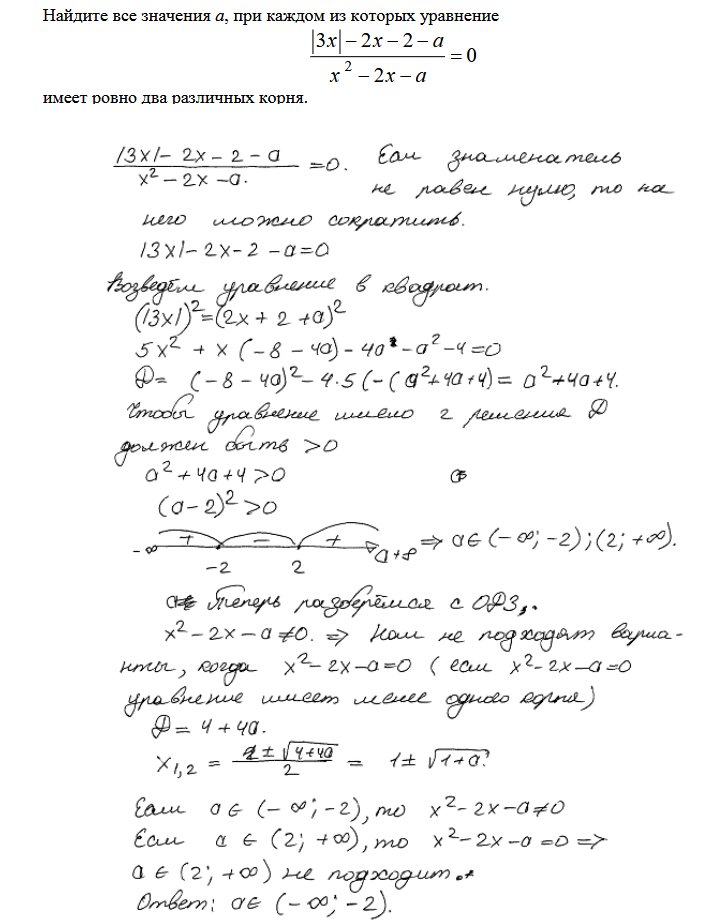 Найдите все значения a, при каждом из которых уравнение
|3x| − 2x − 2 − a / x² − 2x − a = 0
имеет ровно два различных корня.
|3x|− 2x − 2 − a / x² − 2x − a. = 0. Если знаменатель
не равен нулю, то на
него можно сократить.
|3x|− 2x − 2 − a = 0
Возведём уравнение в квадрат.
(|3x|)² = (2x + 2 + a)²
5x² + x (−8 − 4a) − 4a − a² − 4 = 0
D = (−8 − 4a)² − 4·5 (−(a² + 4a + 4) = a² + 4a + 4.
Чтобы уравнение имело 2 решения D
должен быть > 0
a² + 4a + 4 > 0
(a − 2)² > 0
−∞ + −2 − 2 + a +∞ ⇒ a ∈ (−∞; −2); (2; +∞).
Теперь разберёмся с ОДЗ,.
x² − 2x − a ≠ 0. ⇒ Нам не подходят вариа-
нты, когда x² − 2x − a = 0 (если x² − 2x − a = 0
уравнение имеет менее одного корня)
D = 4 + 4a.
x₁,₂ = 2 ± √4 + 4a / 2 = 1 ± √1 + a.
Если a ∈ (−∞; −2), то x² − 2x − a ≠ 0
Если a ∈ (2; +∞), то x² − 2x − a = 0 ⇒
a ∈ (2; +∞) не подходит.
Ответ: a ∈ (−∞; −2).